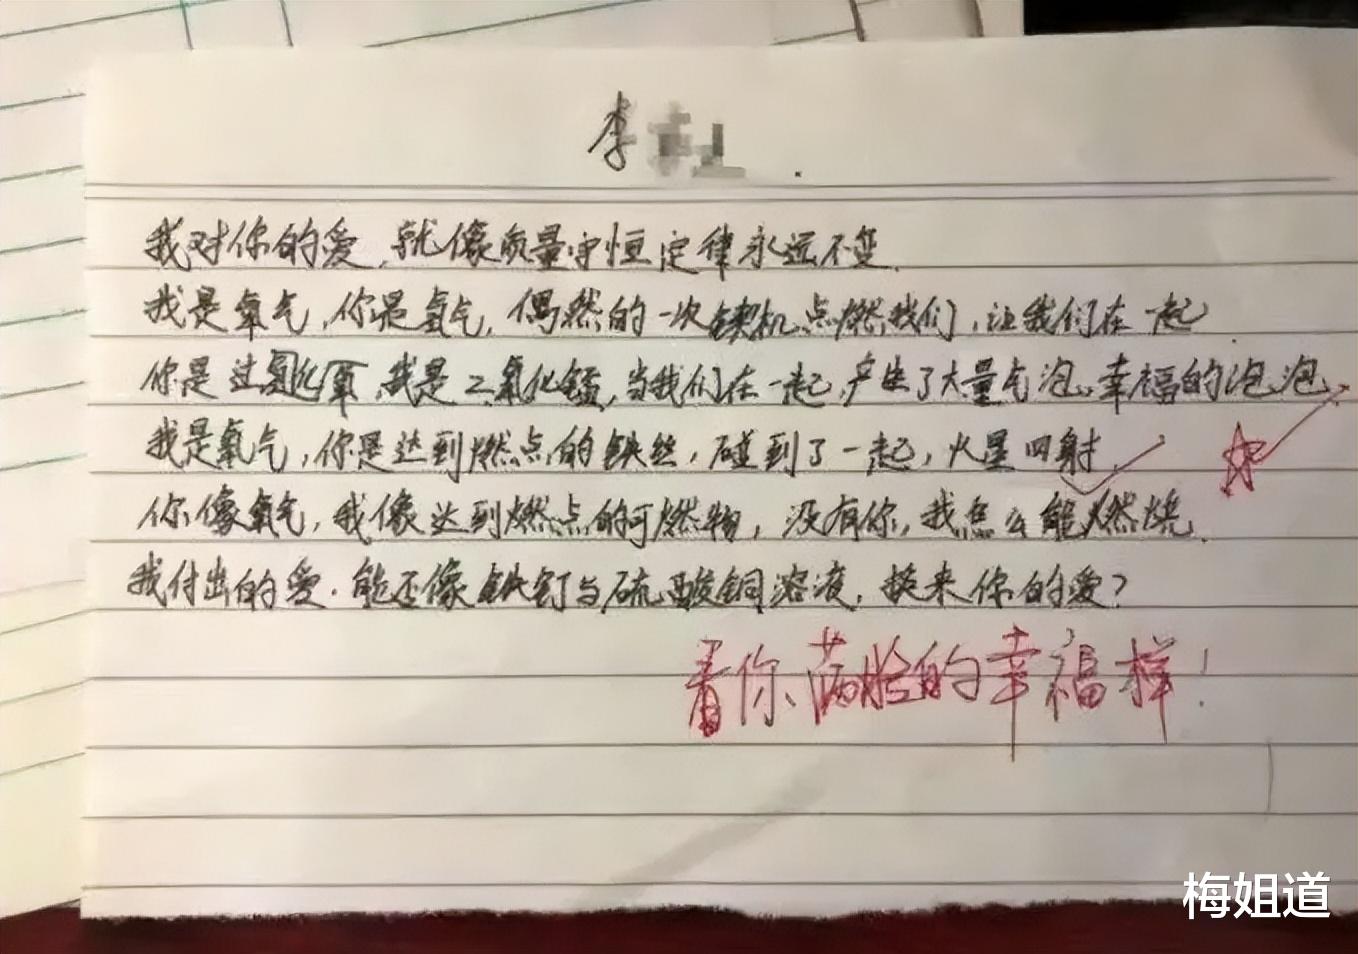 李
我对你的爱,就像质量守恒定律永远不变.
我是氧气,你是氢气,偶然的一次契机点燃我们,让我们在一起.
你是过氧化氢,我是二氧化锰,当我们在一起,产生了大量气泡,幸福的泡泡.
我是氧气,你是达到燃点的铁丝,碰到了一起,火星四射.
你像氧气,我像达到燃点的可燃物,没有你,我怎么能燃烧.
我付出的爱.能否像铁钉与硫酸铜溶液,换来你的爱?
看你满脸的幸福样!
梅姐道